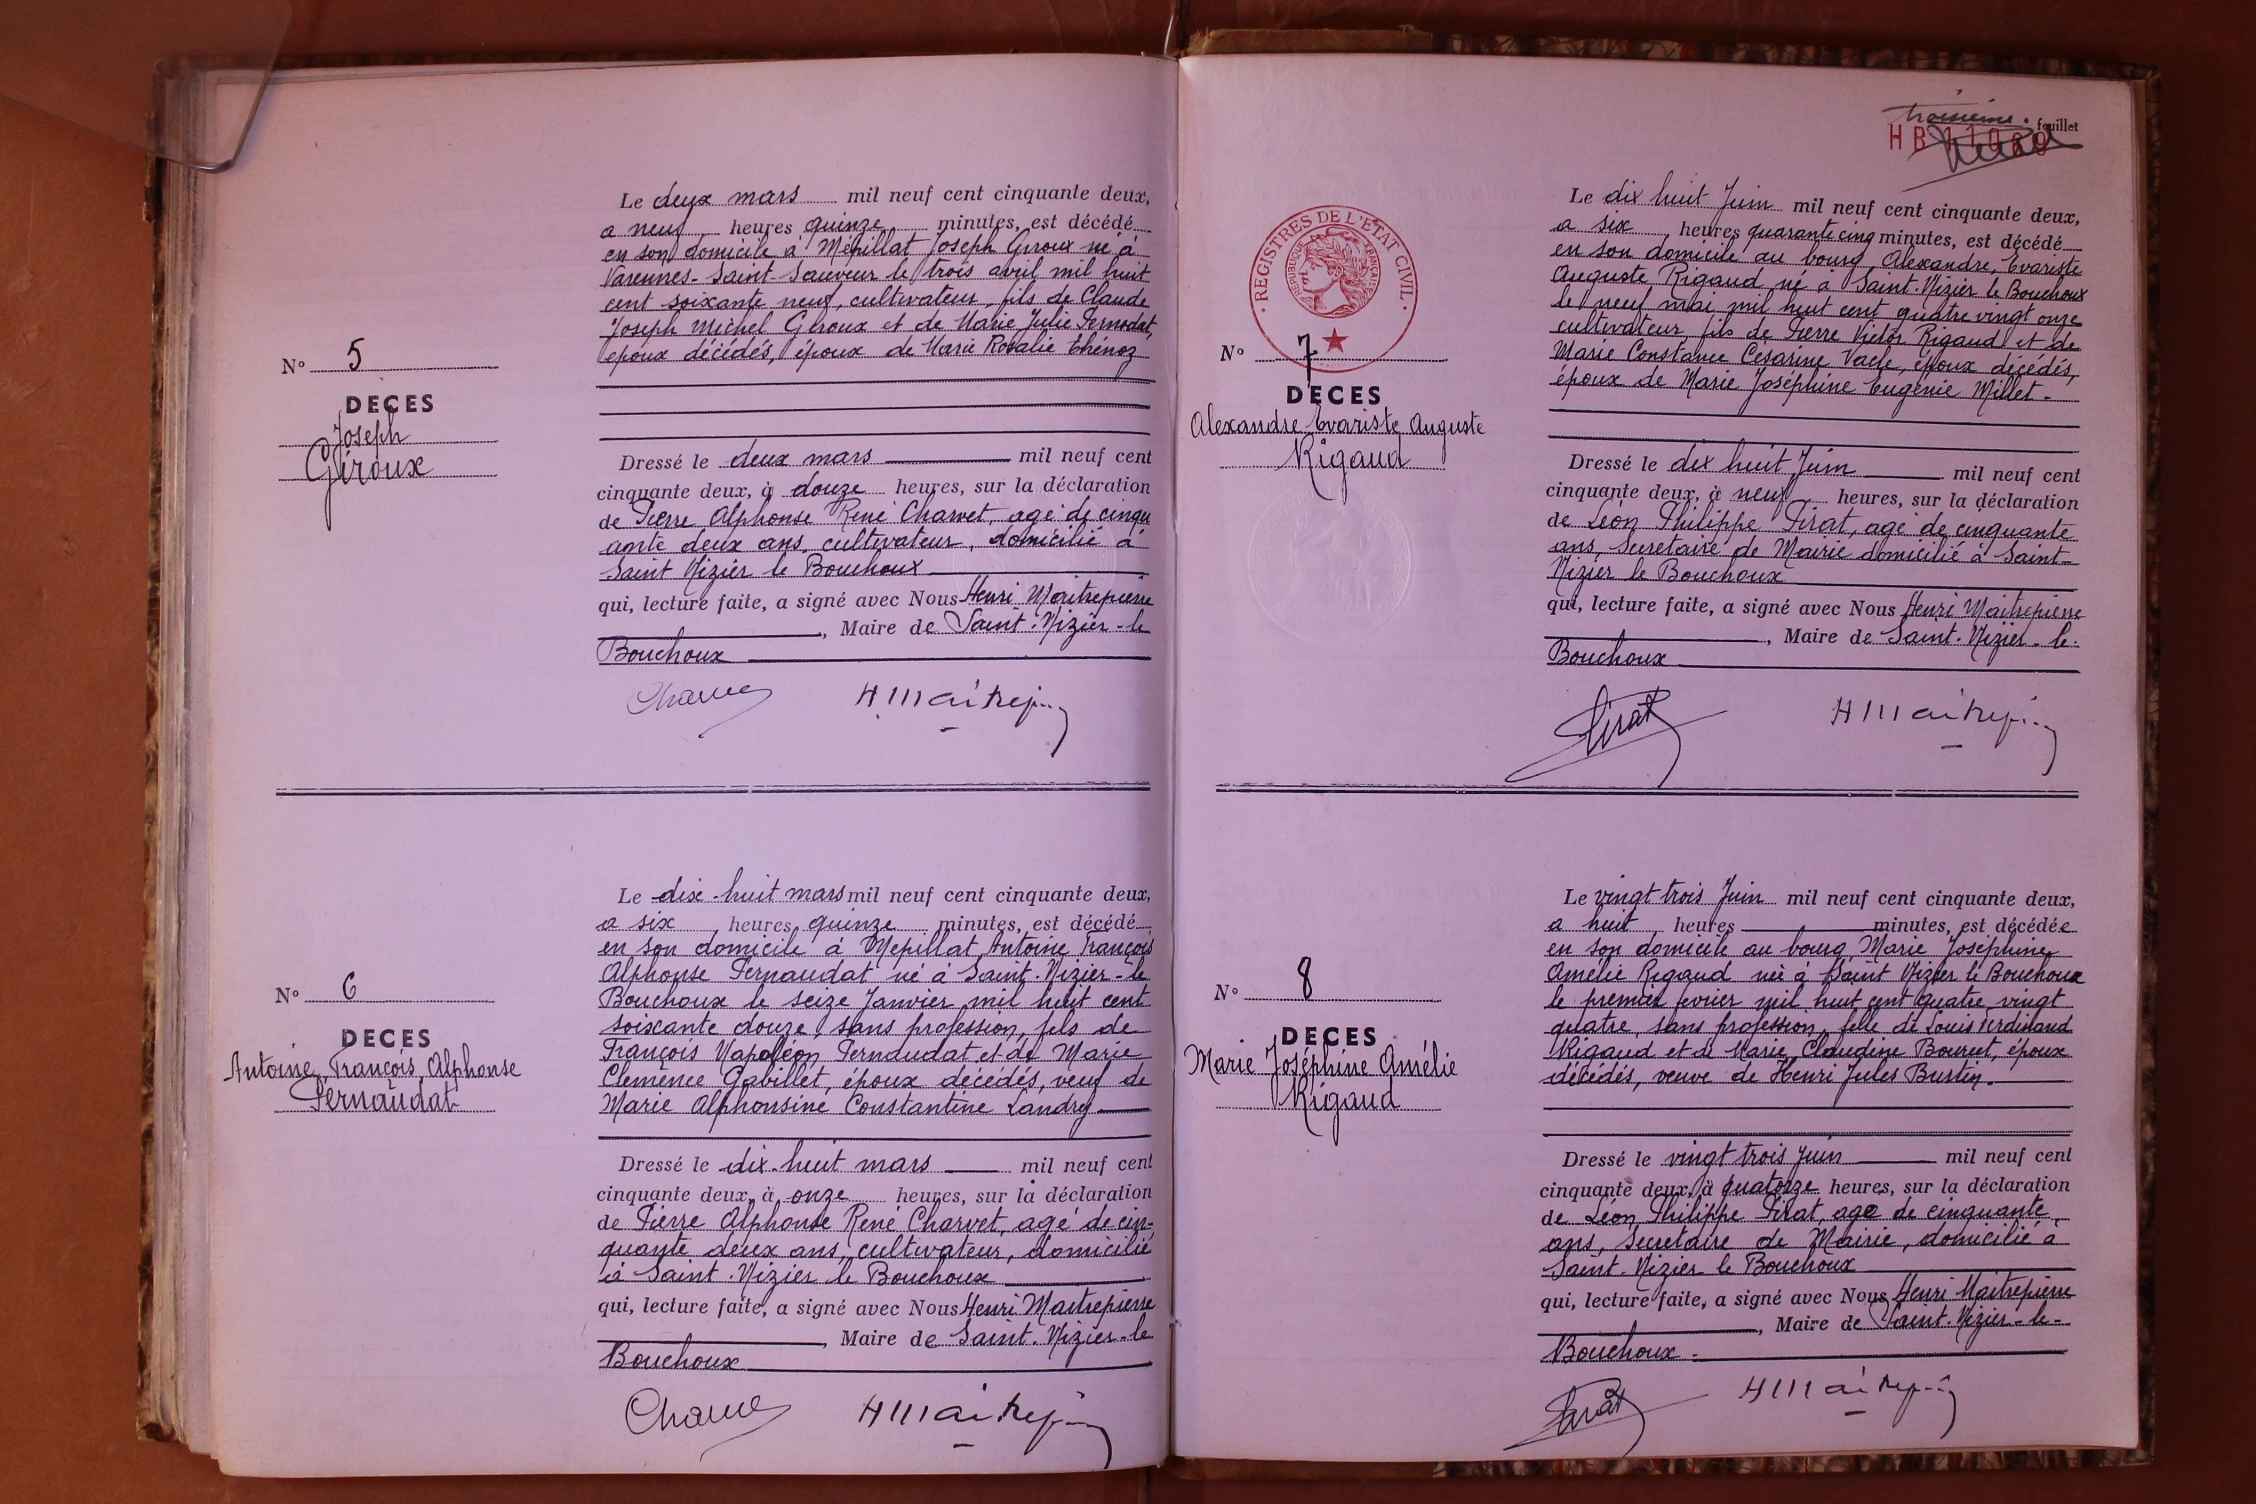 Le deux mars mil neuf cent cinquante deux,
a neuf heures quinze minutes, est décédé
en son domicile à Mépillat Joseph Giroux né à
Varennes-Saint-Sauveur le trois avril mil huit
cent soixante neuf, cultivateur, fils de Claude
Joseph Michel Giroux et de Marie Julie
époux décédés, époux de Marie Rosalie Thénoz
N° 5
DECES
Joseph
Giroux
Dressé le deux mars mil neuf cent
cinquante deux, à douze heures, sur la déclaration
de Pierre Alphonse René Charvet, agé de cinqu
ante deux ans, cultivateur, domicilié à
Saint Nizier le Bouchoux
qui, lecture faite, a signé avec Nous Henri Maitrepierre
, Maire de Saint-Nizier-le
Bouchoux
HMaitrepi
Le dix-huit mars mil neuf cent cinquante deux,
a six heures quinze minutes, est décédé
en son domicile à Mepillat Antoine François
Alphonse Pernaudat né à Saint-Nizier-le
Bouchoux le seize Janvier mil huit cent
soixante douze, sans profession, fils de
François Napoléon Pernaudat et de Marie
Clémence Gabillet, époux décédés, veuf de
Marie Alphonsine Constantine Landry
N° 6
DECES
Antoine, François, Alphonse
Pernaudat
Dressé le dix-huit mars mil neuf cent
cinquante deux, à onze heures, sur la déclaration
de Pierre Alphonse René Charvet, agé de cin-
quante deux ans, cultivateur, domicilié
à Saint-Nizier le Bouchoux
qui, lecture faite, a signé avec Nous Henri Maitrepierre
, Maire de Saint-Nizier-le
Bouchoux
HMaitrepi
troisième feuillet
HB
REGISTRES DE L'ÉTAT CIVIL
RÉPUBLIQUE FRANÇAISE
Le dix huit Juin mil neuf cent cinquante deux,
a six heures quarante cinq minutes, est décédé
en son domicile au bourg Alexandre, Evariste
Auguste Rigaud né à Saint-Nizier le Bouchoux
le neuf mai mil huit cent quatre vingt onze
cultivateur, fils de Pierre Victor Rigaud et de
Marie Constance Césarine Vacle, époux décédés,
époux de Marie Joséphine Eugénie Millet.
N° 7
DECES
Alexandre Evariste Auguste
Rigaud
Dressé le dix huit Juin mil neuf cent
cinquante deux, à neuf heures, sur la déclaration
de Léon Philippe Pirat, agé de cinquante
ans, Secrétaire de Mairie domicilié à Saint-
Nizier le Bouchoux
qui, lecture faite, a signé avec Nous Henri Maitrepierre
, Maire de Saint-Nizier-le-
Bouchoux
Pirat HMaitrepi
Le vingt trois Juin mil neuf cent cinquante deux,
a huit heures minutes, est décédée
en son domicile au bourg Marie Joséphine
Amélie Rigaud née à Saint Nizier le Bouchoux
le premier février mil huit cent quatre vingt
quatre, sans profession, fille de Louis Ferdinand
Rigaud et de Marie Claudine Bourcet, époux
décédés, veuve de Henri Jules Burtin.
N° 8
DECES
Marie Joséphine Amélie
Rigaud
Dressé le vingt trois Juin mil neuf cent
cinquante deux, à quatorze heures, sur la déclaration
de Léon Philippe Pirat, age de cinquante
ans, Secrétaire de Mairie, domicilié à
Saint-Nizier le Bouchoux
qui, lecture faite, a signé avec Nous Henri Maitrepierre
, Maire de Saint-Nizier-le-
Bouchoux.
Pirat HMaitrepi